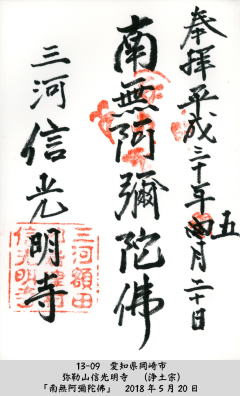 奉拝 平成三十年五月二十日
南無阿彌陀佛
三河信光明寺
三河額田
信光明寺
13-09 愛知県岡崎市
弥勒山信光明寺 (浄土宗)
「南無阿彌陀佛」 2018年5月20日